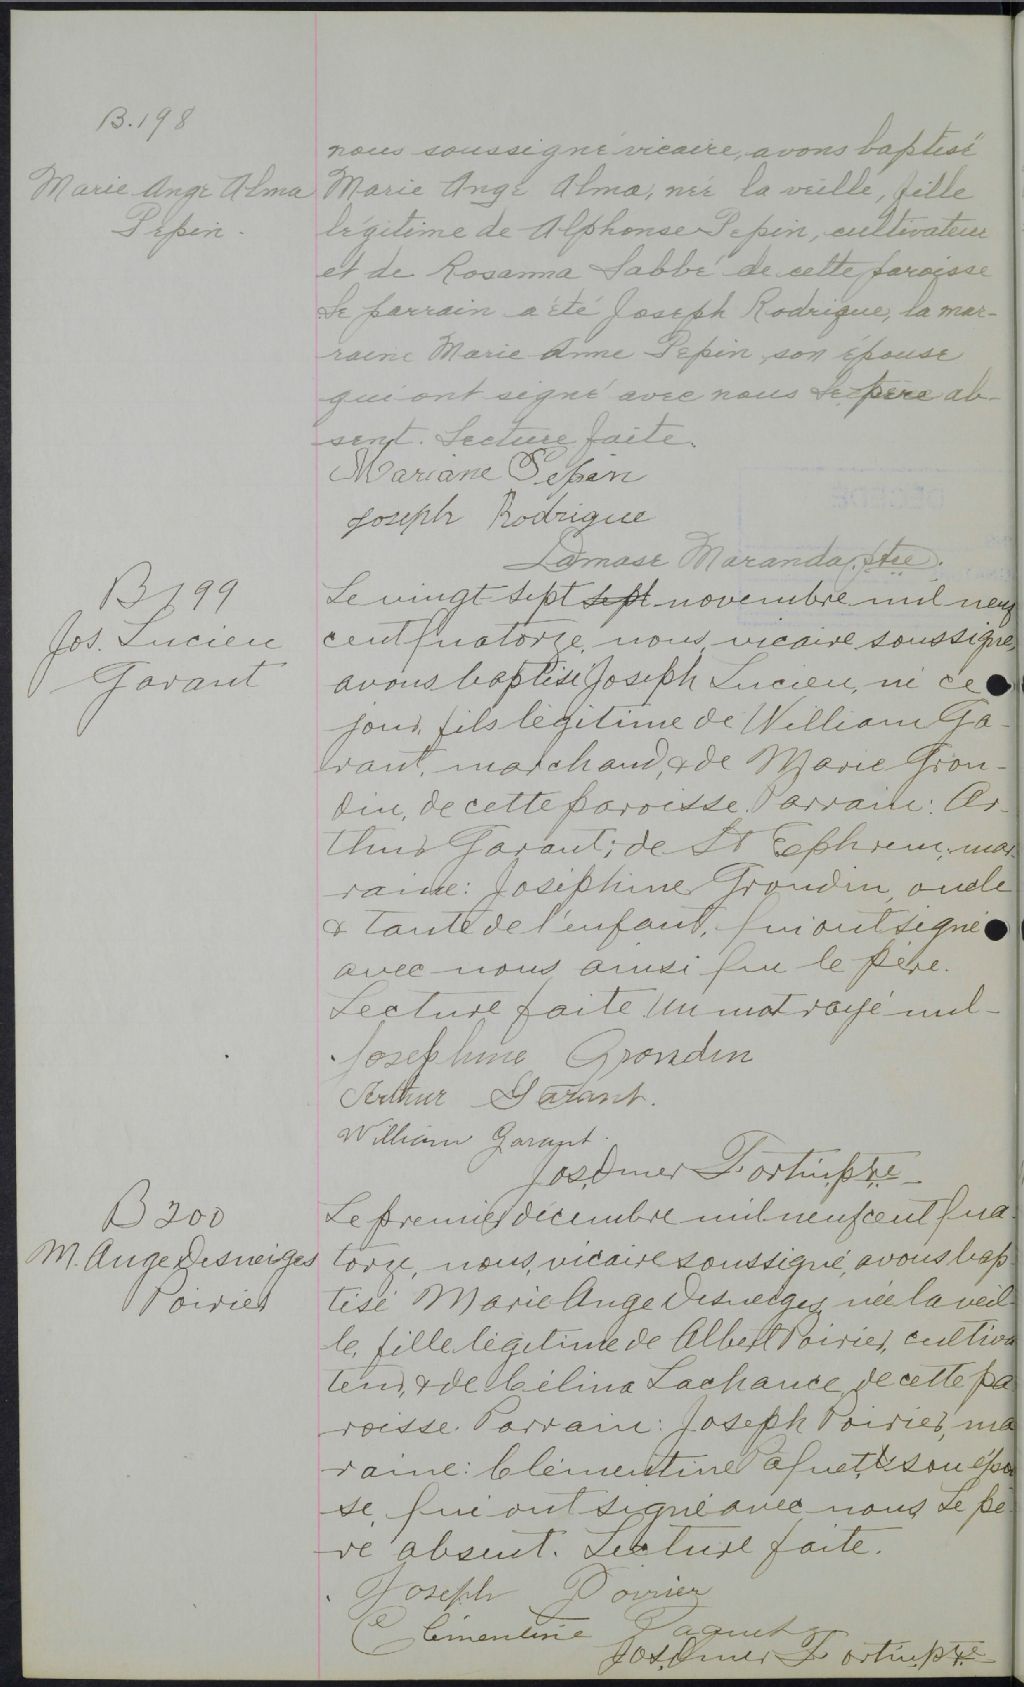 B.198
Marie Ange Alma
Pepin.
nous soussigné vicaire, avons baptisé
Marie Ange Alma, née la veille, fille
légitime de Alphonse Pepin, cultivateur
et de Rosanna Labbé de cette paroisse
Le parrain a été Joseph Rodrigue, la mar-
raine Marie Anne Pepin, son épouse
qui ont signé avec nous Le père ab-
sent. Lecture faite.
Mariane Pepin
Joseph Rodrigue
Damase Maranda, ptre.
B 199
Jos. Lucien
Garant
Le vingt sept sept novembre mil neuf
cent quatorze, nous, vicaire soussigné,
avons baptisé Joseph Lucien, né ce
jour, fils légitime de William Ga-
rant, marchand, & de Marie Gron-
din, de cette paroisse. Parrain: Ar-
thur Garant, de St Ephrem, mar-
raine: Joséphine Grondin, oncle
& tante de l'enfant, qui ont signé
avec nous ainsi que le père.
Lecture faite. Un mot rayé nul-
Josephine Grondin
Arthur Garant.
William Garant.
Jos. Omer Fortin, ptre
B 200
M. Ange Desneiges
Poirier
Le premier décembre mil neuf cent qua-
torze, nous, vicaire soussigné, avons bap-
tisé Marie Ange Desneiges, née la veil-
le, fille légitime de Albert Poirier, cultiva
teur, & de Célina Lachance, de cette pa
roisse. Parrain: Joseph Poirier, ma
raine: Clémentine Paquet, son épou
se, qui ont signé avec nous, Le pè-
re absent. Lecture faite.
Joseph Poirier
Clémentine Paquet
Jos. Omer Fortin, ptre